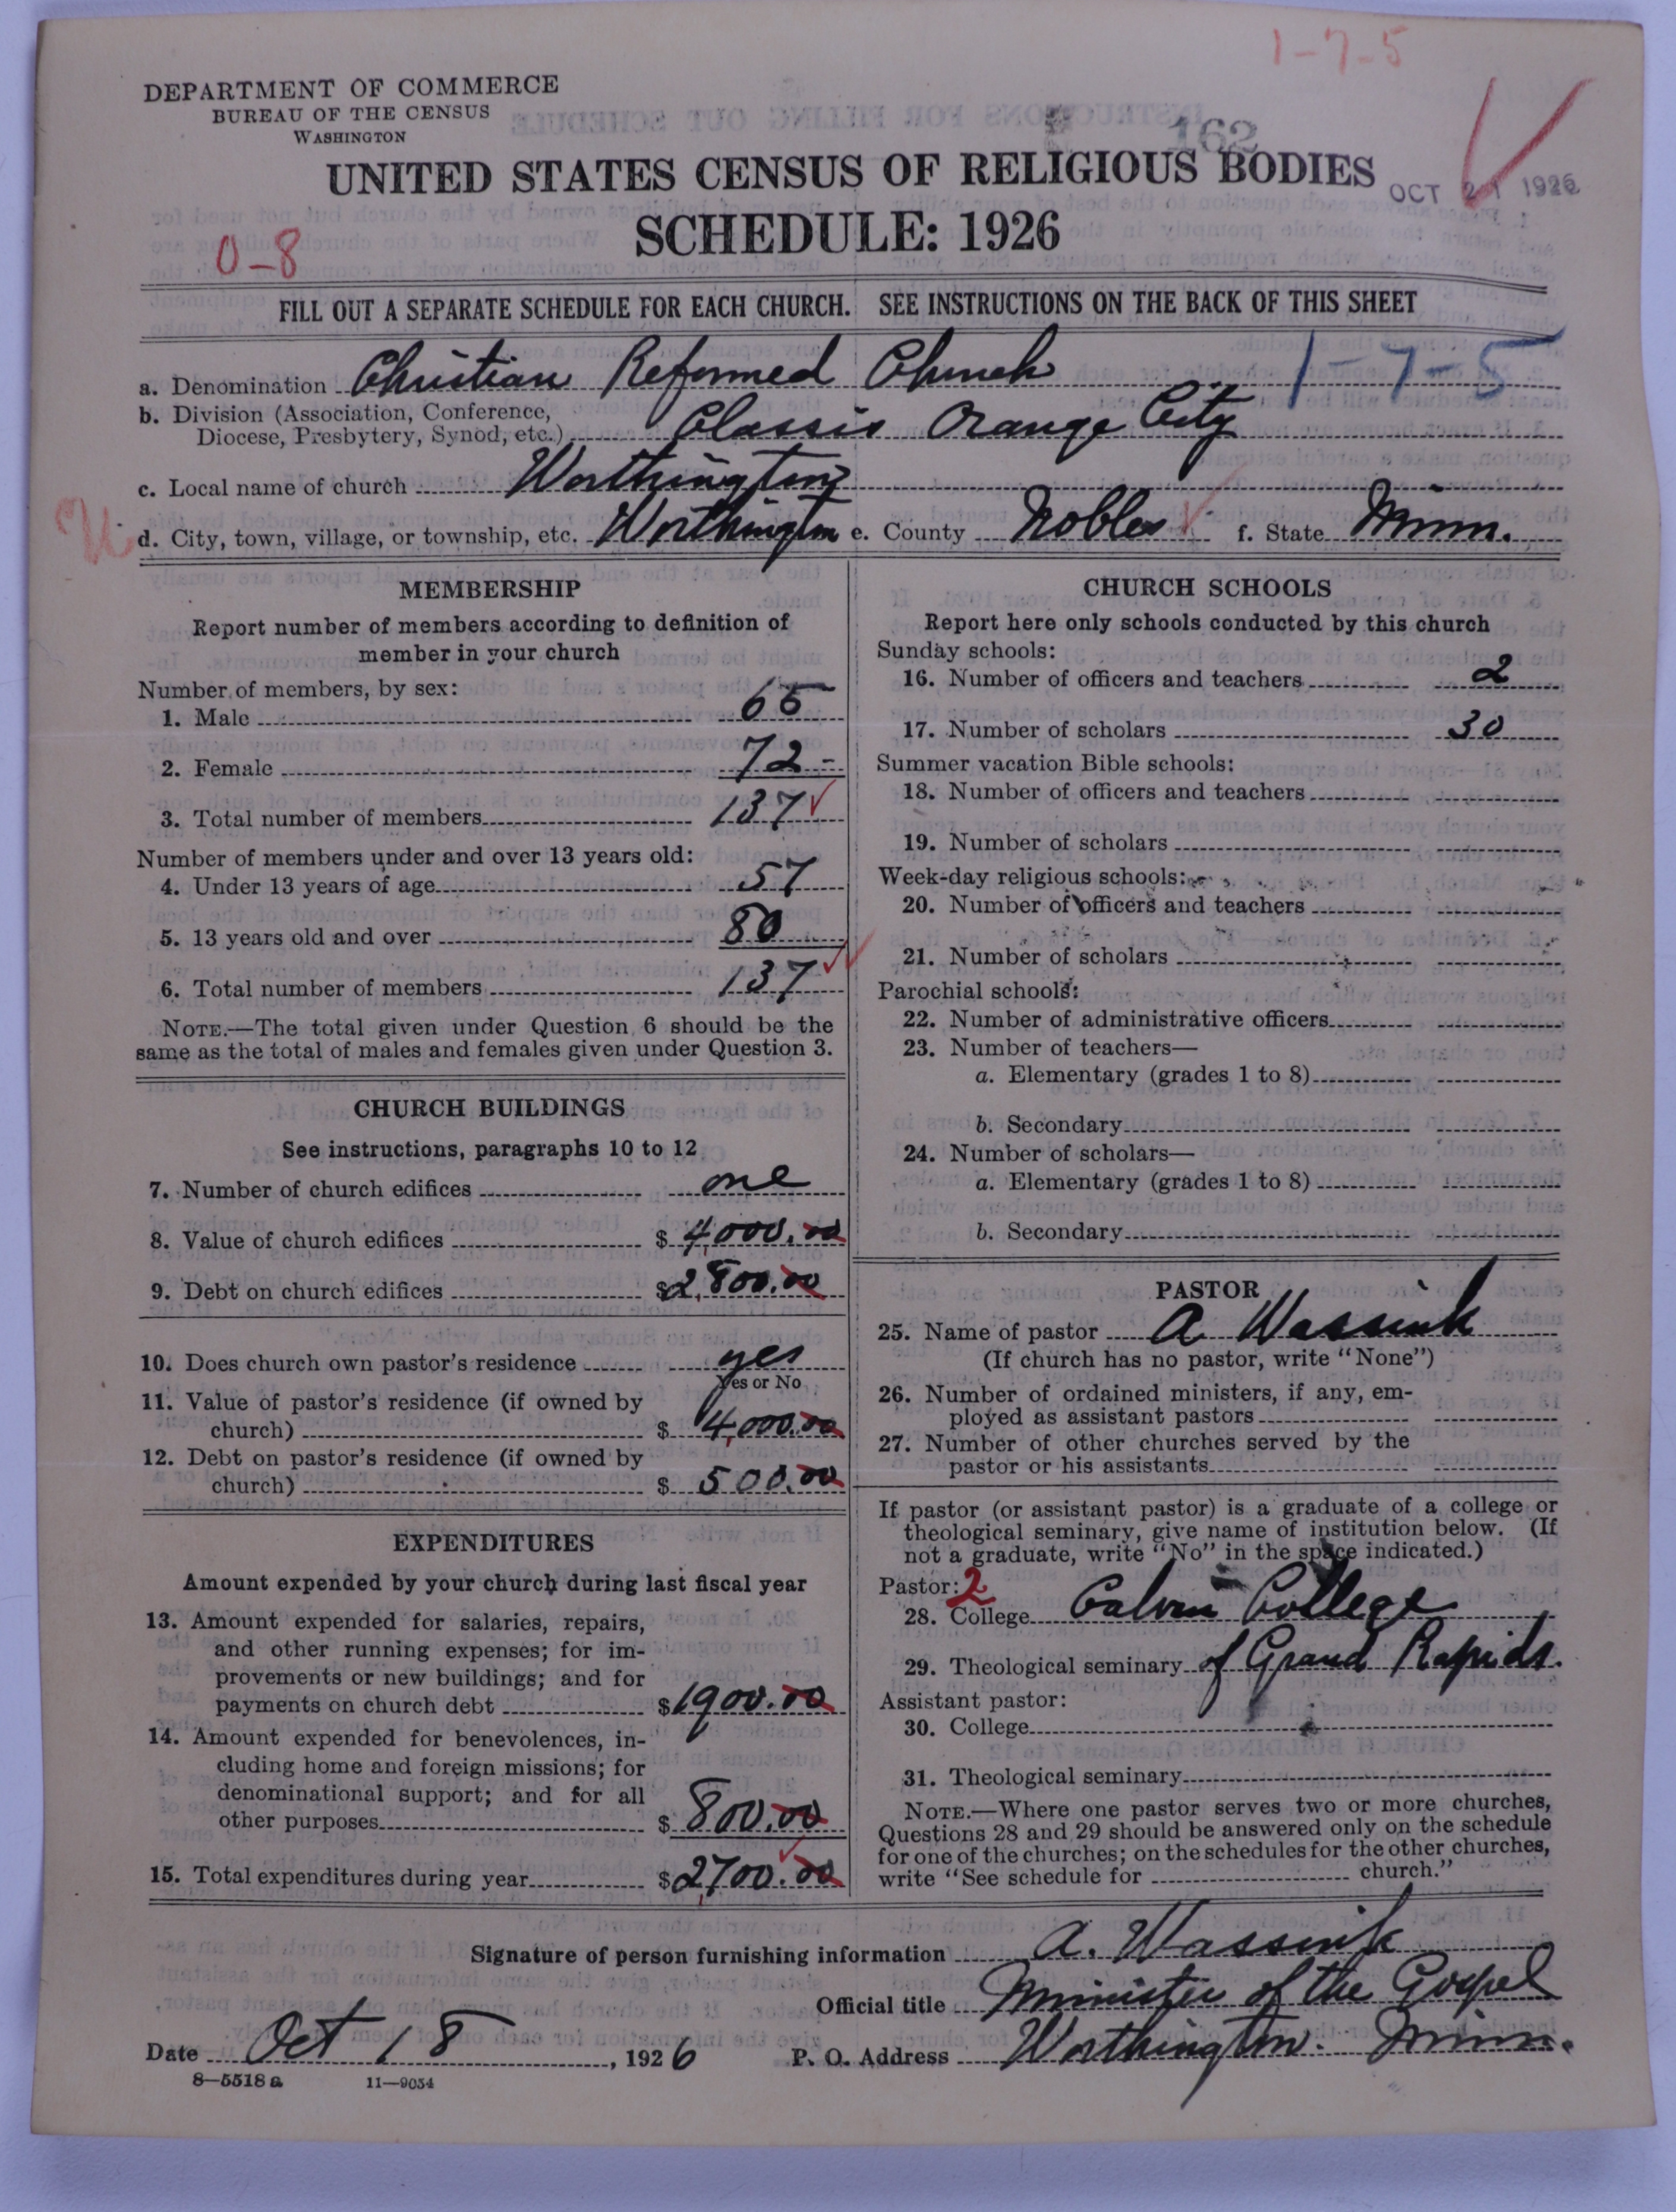 1-7-5
DEPARTMENT OF COMMERCE
BUREAU OF THE CENSUS
WASHINGTON
162
UNITED STATES CENSUS OF RELIGIOUS BODIES
OCT 21 1926
SCHEDULE: 1926
0-8
FILL OUT A SEPARATE SCHEDULE FOR EACH CHURCH. SEE INSTRUCTIONS ON THE BACK OF THIS SHEET
a. Denomination Christian Reformed Church 1-7-5
b. Division (Association, Conference,
Diocese, Presbytery, Synod, etc.) Classis Orange City
c. Local name of church Worthington
d. City, town, village, or township, etc. Worthington e. County Nobles f. State Minn.
MEMBERSHIP
Report number of members according to definition of
member in your church
Number of members, by sex:
1. Male 65
2. Female 72-
3. Total number of members 137
Number of members under and over 13 years old:
4. Under 13 years of age 57
5. 13 years old and over 80
6. Total number of members 137
NOTE.—The total given under Question 6 should be the
same as the total of males and females given under Question 3.
CHURCH BUILDINGS
See instructions, paragraphs 10 to 12
7. Number of church edifices one
8. Value of church edifices $ 4,000.00
9. Debt on church edifices $2,800.00
10. Does church own pastor's residence yes
Yes or No
11. Value of pastor's residence (if owned by
church) $ 4,000.00
12. Debt on pastor's residence (if owned by
church) $ 500.00
EXPENDITURES
Amount expended by your church during last fiscal year
13. Amount expended for salaries, repairs,
and other running expenses; for im-
provements or new buildings; and for
payments on church debt $1900.00
14. Amount expended for benevolences, in-
cluding home and foreign missions; for
denominational support; and for all
other purposes $ 800.00
15. Total expenditures during year $2,700.00
CHURCH SCHOOLS
Report here only schools conducted by this church
Sunday schools:
16. Number of officers and teachers 2
17. Number of scholars 30
Summer vacation Bible schools:
18. Number of officers and teachers
19. Number of scholars
Week-day religious schools:
20. Number of officers and teachers
21. Number of scholars
Parochial schools:
22. Number of administrative officers
23. Number of teachers—
a. Elementary (grades 1 to 8)
b. Secondary
24. Number of scholars—
a. Elementary (grades 1 to 8)
b. Secondary
PASTOR
25. Name of pastor A Wassink
(If church has no pastor, write "None")
26. Number of ordained ministers, if any, em-
ployed as assistant pastors
27. Number of other churches served by the
pastor or his assistants
If pastor (or assistant pastor) is a graduate of a college or
theological seminary, give name of institution below. (If
not a graduate, write "No" in the space indicated.)
Pastor: 2
28. College Calvin College
29. Theological seminary of Grand Rapids.
Assistant pastor:
30. College
31. Theological seminary
NOTE.—Where one pastor serves two or more churches,
Questions 28 and 29 should be answered only on the schedule
for one of the churches; on the schedules for the other churches,
write "See schedule for church."
Signature of person furnishing information A. Wassink
Official title Minister of the Gospel
Date Oct 18, 1926 P. O. Address Worthington. Minn.
8—5518a 11—9054